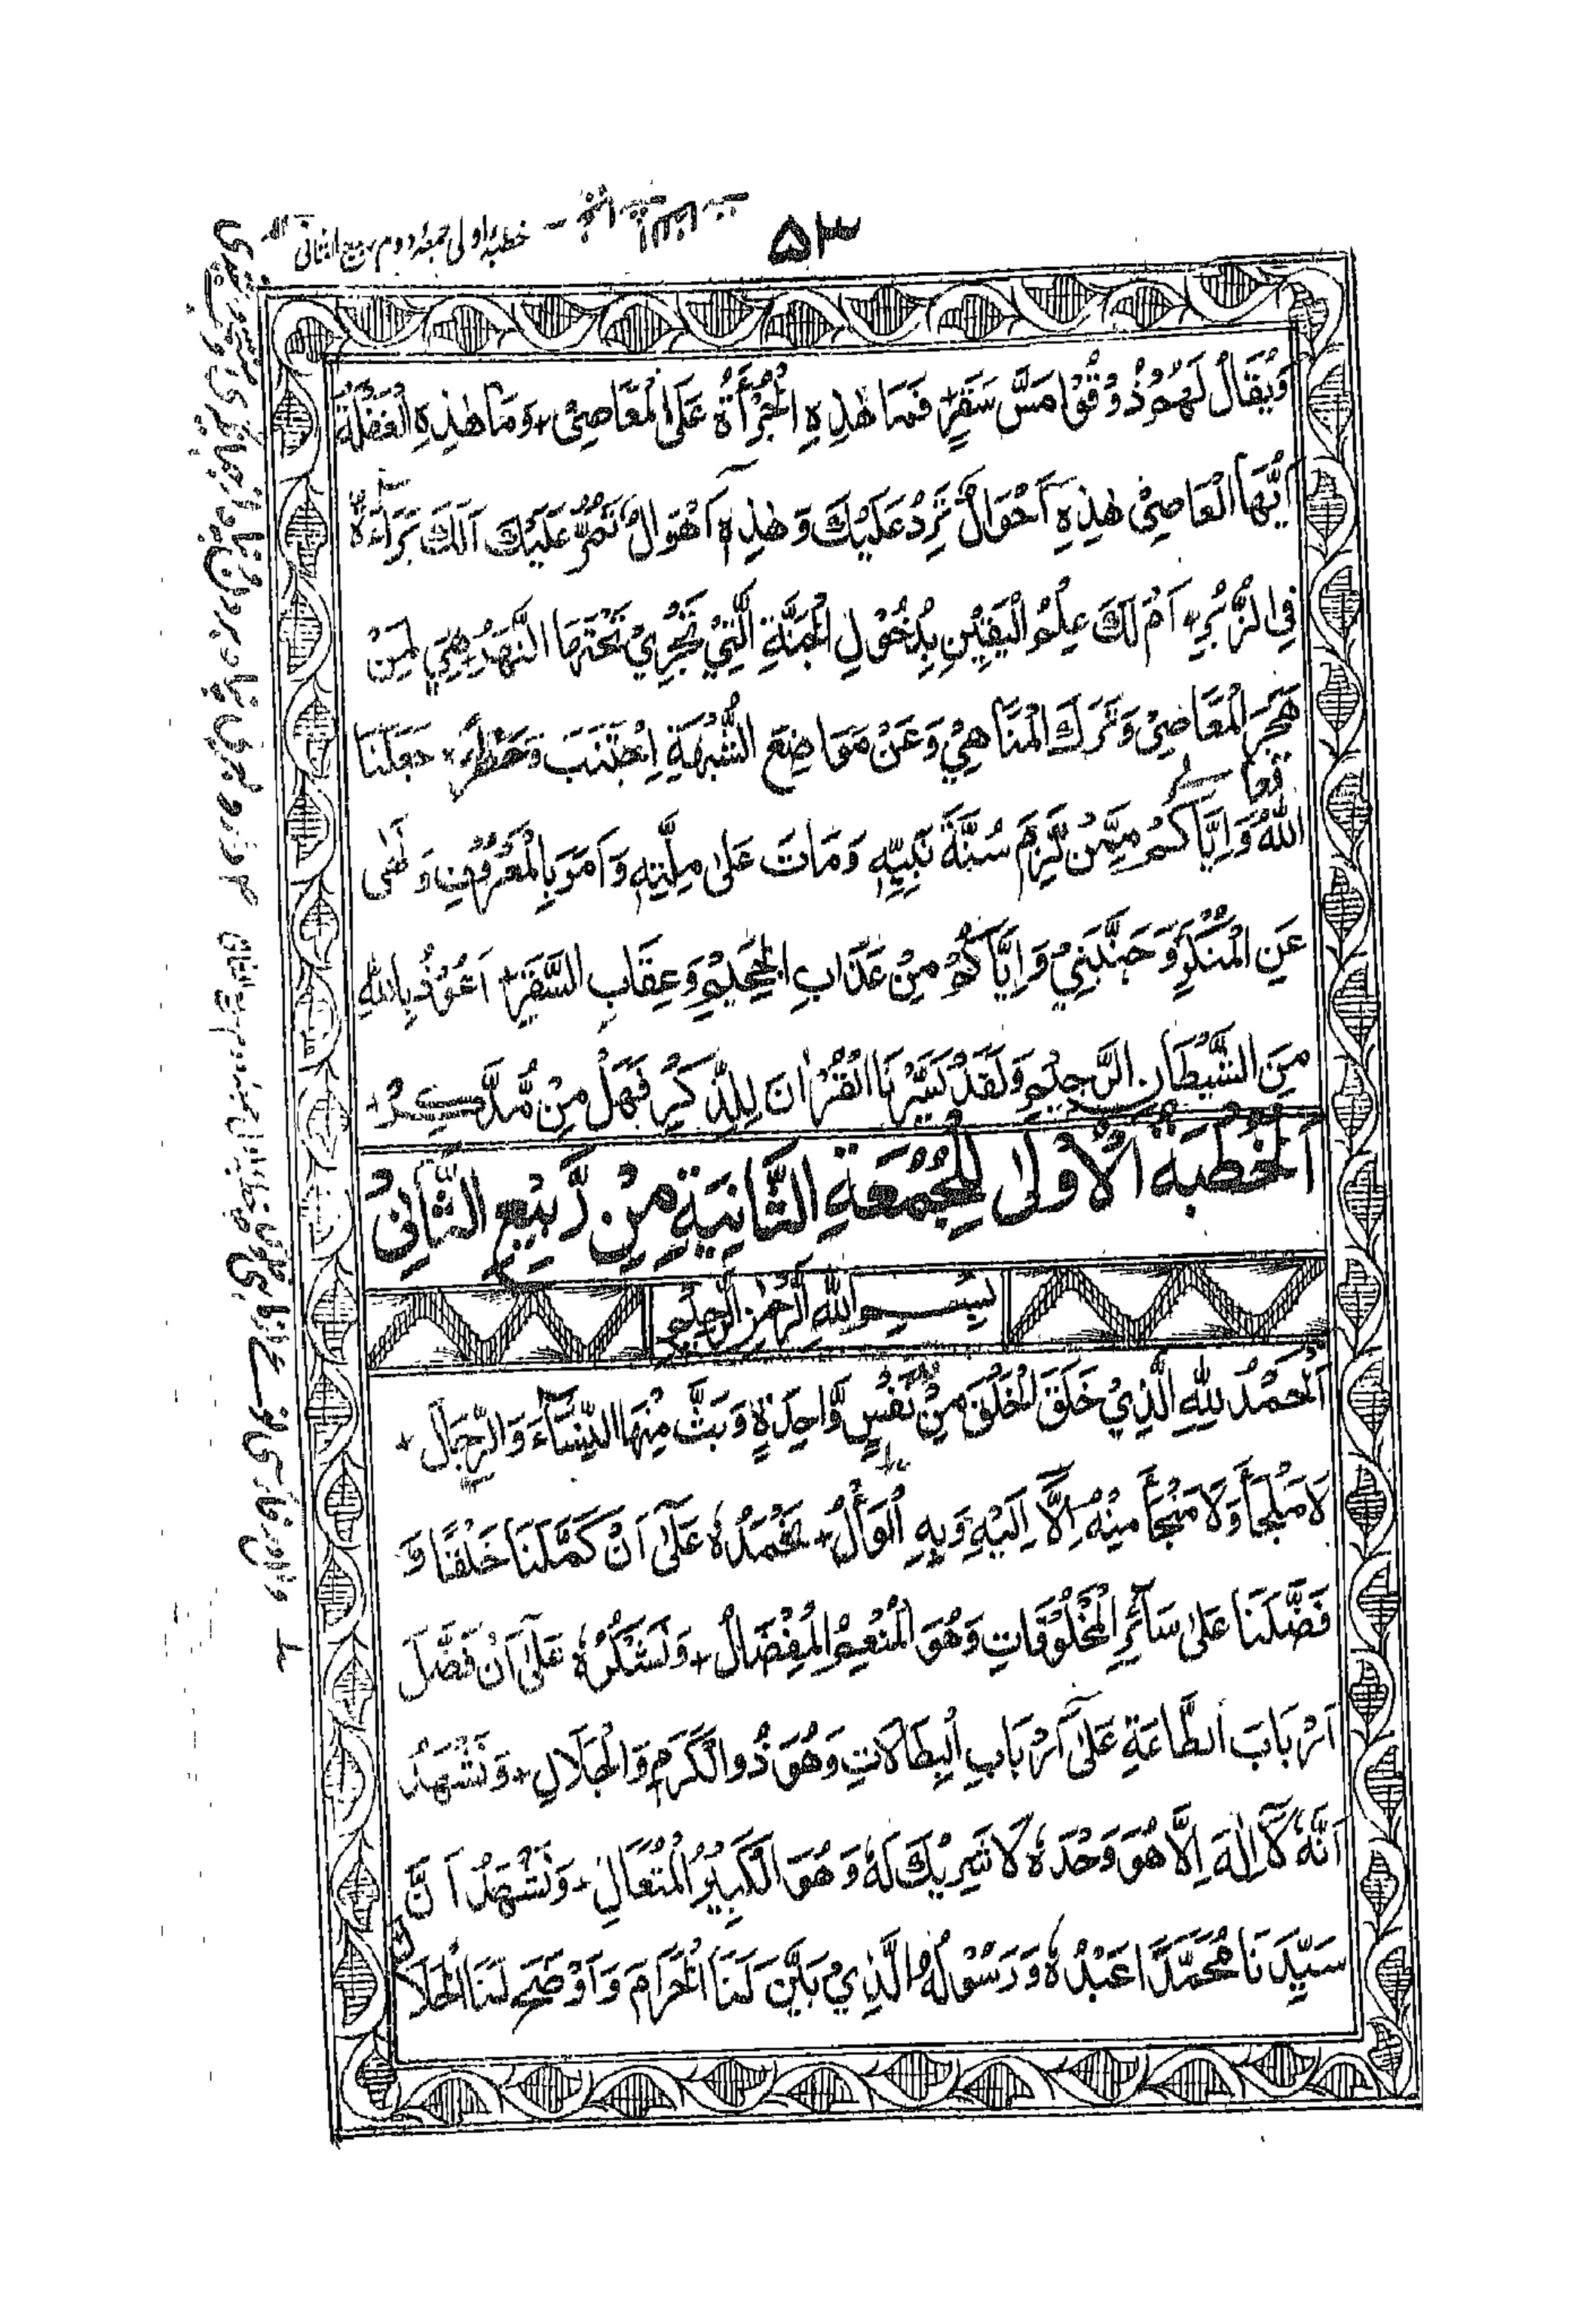 ۵۳
خطبهٔ اولی جمعهٔ دوم ربیع الثانی
وَيُقَالُ لَهُمْ ذُوْقُوْا مَسَّ سَقَرَ+ فَمَا هٰذِهِ الْجُرْأَةُ عَلَى الْمَعَاصِيْ+ وَمَا هٰذِهِ الْغَفْلَةُ
اَيُّهَا الْعَاصِيْ هٰذِهِ اَحْوَالٌ تَرِدُ عَلَيْكَ وَهٰذِهٖ اَهْوَالٌ تَمُرُّ عَلَيْكَ اَلَكَ بَرَآءَةٌ
فِي الزُّبُرِ+ اَمْ لَكَ عِلْمُ الْيَقِيْنِ بِدُخُوْلِ الْجَنَّةِ الَّتِيْ تَجْرِيْ تَحْتَهَا النَّهَرُ+ هِيَ لِمَنْ
هَجَرَ الْمَعَاصِيْ وَتَرَكَ الْمَنَاهِيْ وَعَنْ مَوَاضِعِ الشُّبْهَةِ اِجْتَنَبَ وَحَظَرَ+ جَعَلَنَا
اللّٰهُ تعالے وَاِيَّاكُمْ مِمَّنْ لَزِمَ سُنَّةَ نَبِيِّهٖ وَمَاتَ عَلٰى مِلَّتِهٖ وَاَمَرَ بِالْمَعْرُوْفِ وَنَهٰى
عَنِ الْمُنْكَرِ وَجَنَّبَنِيْ وَاِيَّاكُمْ مِنْ عَذَابِ الْجَحِيْمِ وَعِقَابِ السَّقَرِ+ اَعُوْذُ بِاللّٰهِ
مِنَ الشَّيْطَانِ الرَّجِيْمِ وَلَقَدْ يَسَّرْنَا الْقُرْاٰنَ لِلذِّكْرِ فَهَلْ مِنْ مُّدَّكِرٍ+
اَلْخُطْبَةُ الْاُوْلٰى لِلْجُمُعَةِ الثَّانِيَةِ مِنْ رَّبِيْعِ الثَّانِيْ
بِسْمِ اللّٰهِ الرَّحْمٰنِ الرَّحِيْمِ
اَلْحَمْدُ لِلّٰهِ الَّذِيْ خَلَقَ الْخَلْقَ مِنْ نَّفْسٍ وَّاحِدَةٍ وَبَثَّ مِنْهَا النِّسَآءَ وَالرِّجَالَ+
لَا مَلْجَأَ وَلَا مَنْجَأَ مِنْهُ اِلَّا اِلَيْهِ وَبِهِ الْوَأْلُ+ نَحْمَدُهٗ عَلٰى اَنْ كَمَّلَنَا خَلْقًا وَ
فَضَّلَنَا عَلٰى سَآئِرِ الْمَخْلُوْقَاتِ وَهُوَ الْمُنْعِمُ الْمِفْضَالُ+ وَنَشْكُرُهٗ عَلٰى اَنْ فَضَّلَ
اَرْبَابَ الطَّاعَةِ عَلٰى اَرْبَابِ الْبِطَالَاتِ وَهُوَ ذُو الْكَرَمِ وَالْجَلَالِ+ وَنَشْهَدُ
اَنَّهٗ لَآ اِلٰهَ اِلَّا هُوَ وَحْدَهٗ لَا شَرِيْكَ لَهٗ وَهُوَ الْكَبِيْرُ الْمُتَعَالِ+ وَنَشْهَدُ اَنَّ
سَيِّدَنَا مُحَمَّدًا عَبْدُهٗ وَرَسُوْلُهُ الَّذِيْ بَيَّنَ لَنَا الْحَرَامَ وَاَوْضَحَ لَنَا الْحَلَالَ